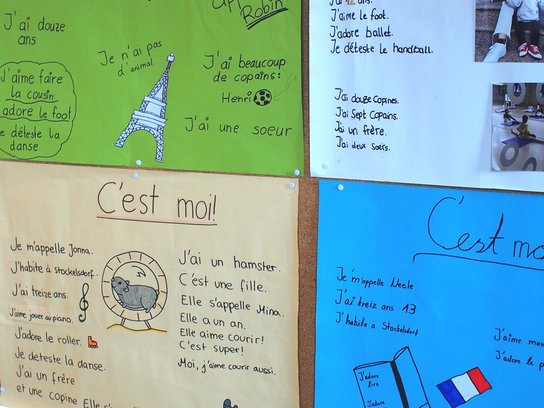 Robin
J'ai douze
ans
Je n'ai pas
d'animal
J'ai beaucoup
de copains:
Henri
J'aime faire
la cousin
adore le foot
e déteste la
danse
J'ai une soeur
J'ai 12 ans.
J'aime le foot.
J'adore ballet.
Je déteste le handball.
J'ai douze copines.
J'ai Sept Copains.
J'ai un frère.
J'ai deux soers.
C'est moi!
Je m'appelle Jonna.
J'habite à Stockelsdorf.
J'ai treize ans.
J'aime jouer au piano.
J'adore le roller.
Je deteste la danse.
J'ai un frère
et une copine Elle s'app
J'ai un hamster.
C'est une fille.
Elle s'appelle Mina.
Elle a un an.
Elle aime courir!
C'est super!
Moi, j'aime courir aussi.
C'est mo
Je m'appelle Neele
J'ai treiz ans 13
J'habite a Stockelsdorf
J'aime ma
J'adore le p
J'adore
lire